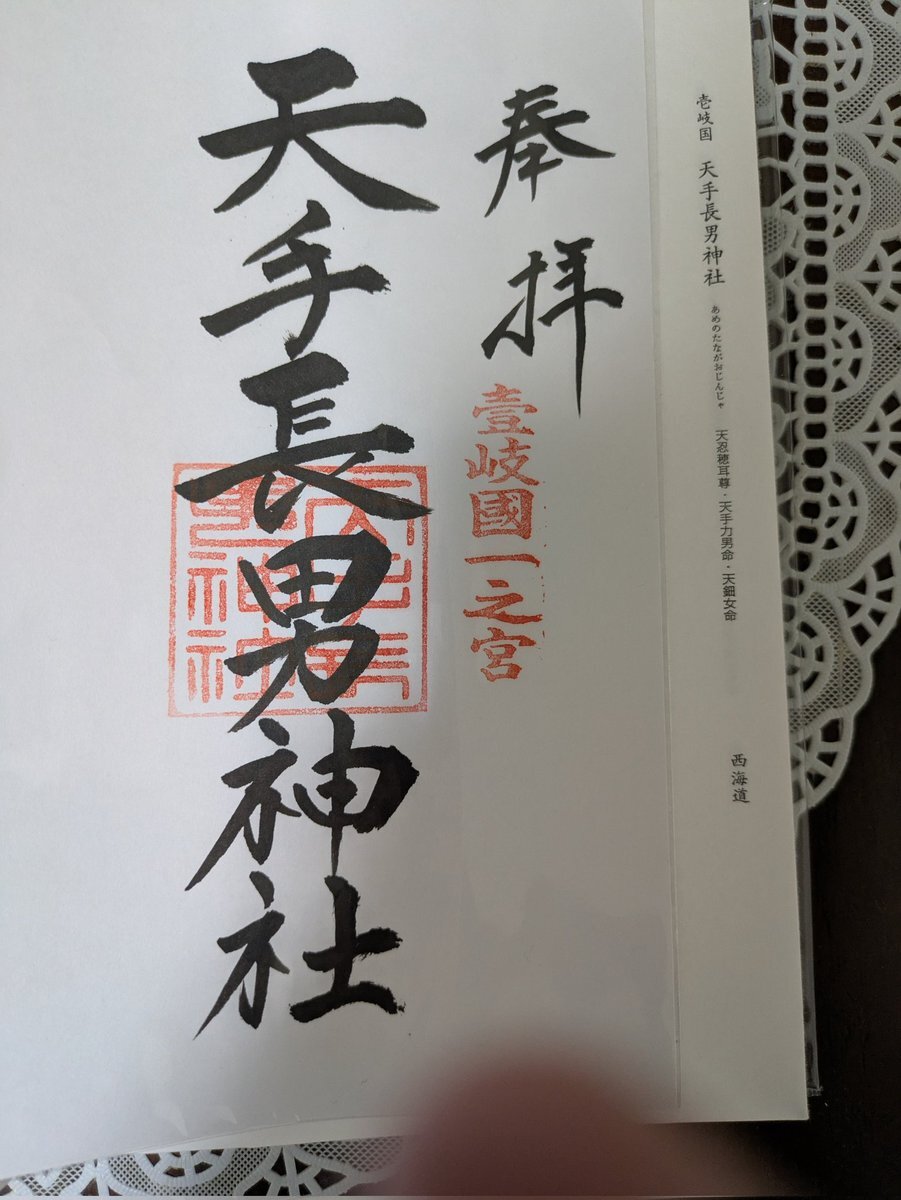 壱岐国 天手長男神社 あめのたながおじんじゃ 天忍穂耳尊・天手力男命・天鈿女命 西海道
奉拝
壹岐國一之宮
天手長男神社